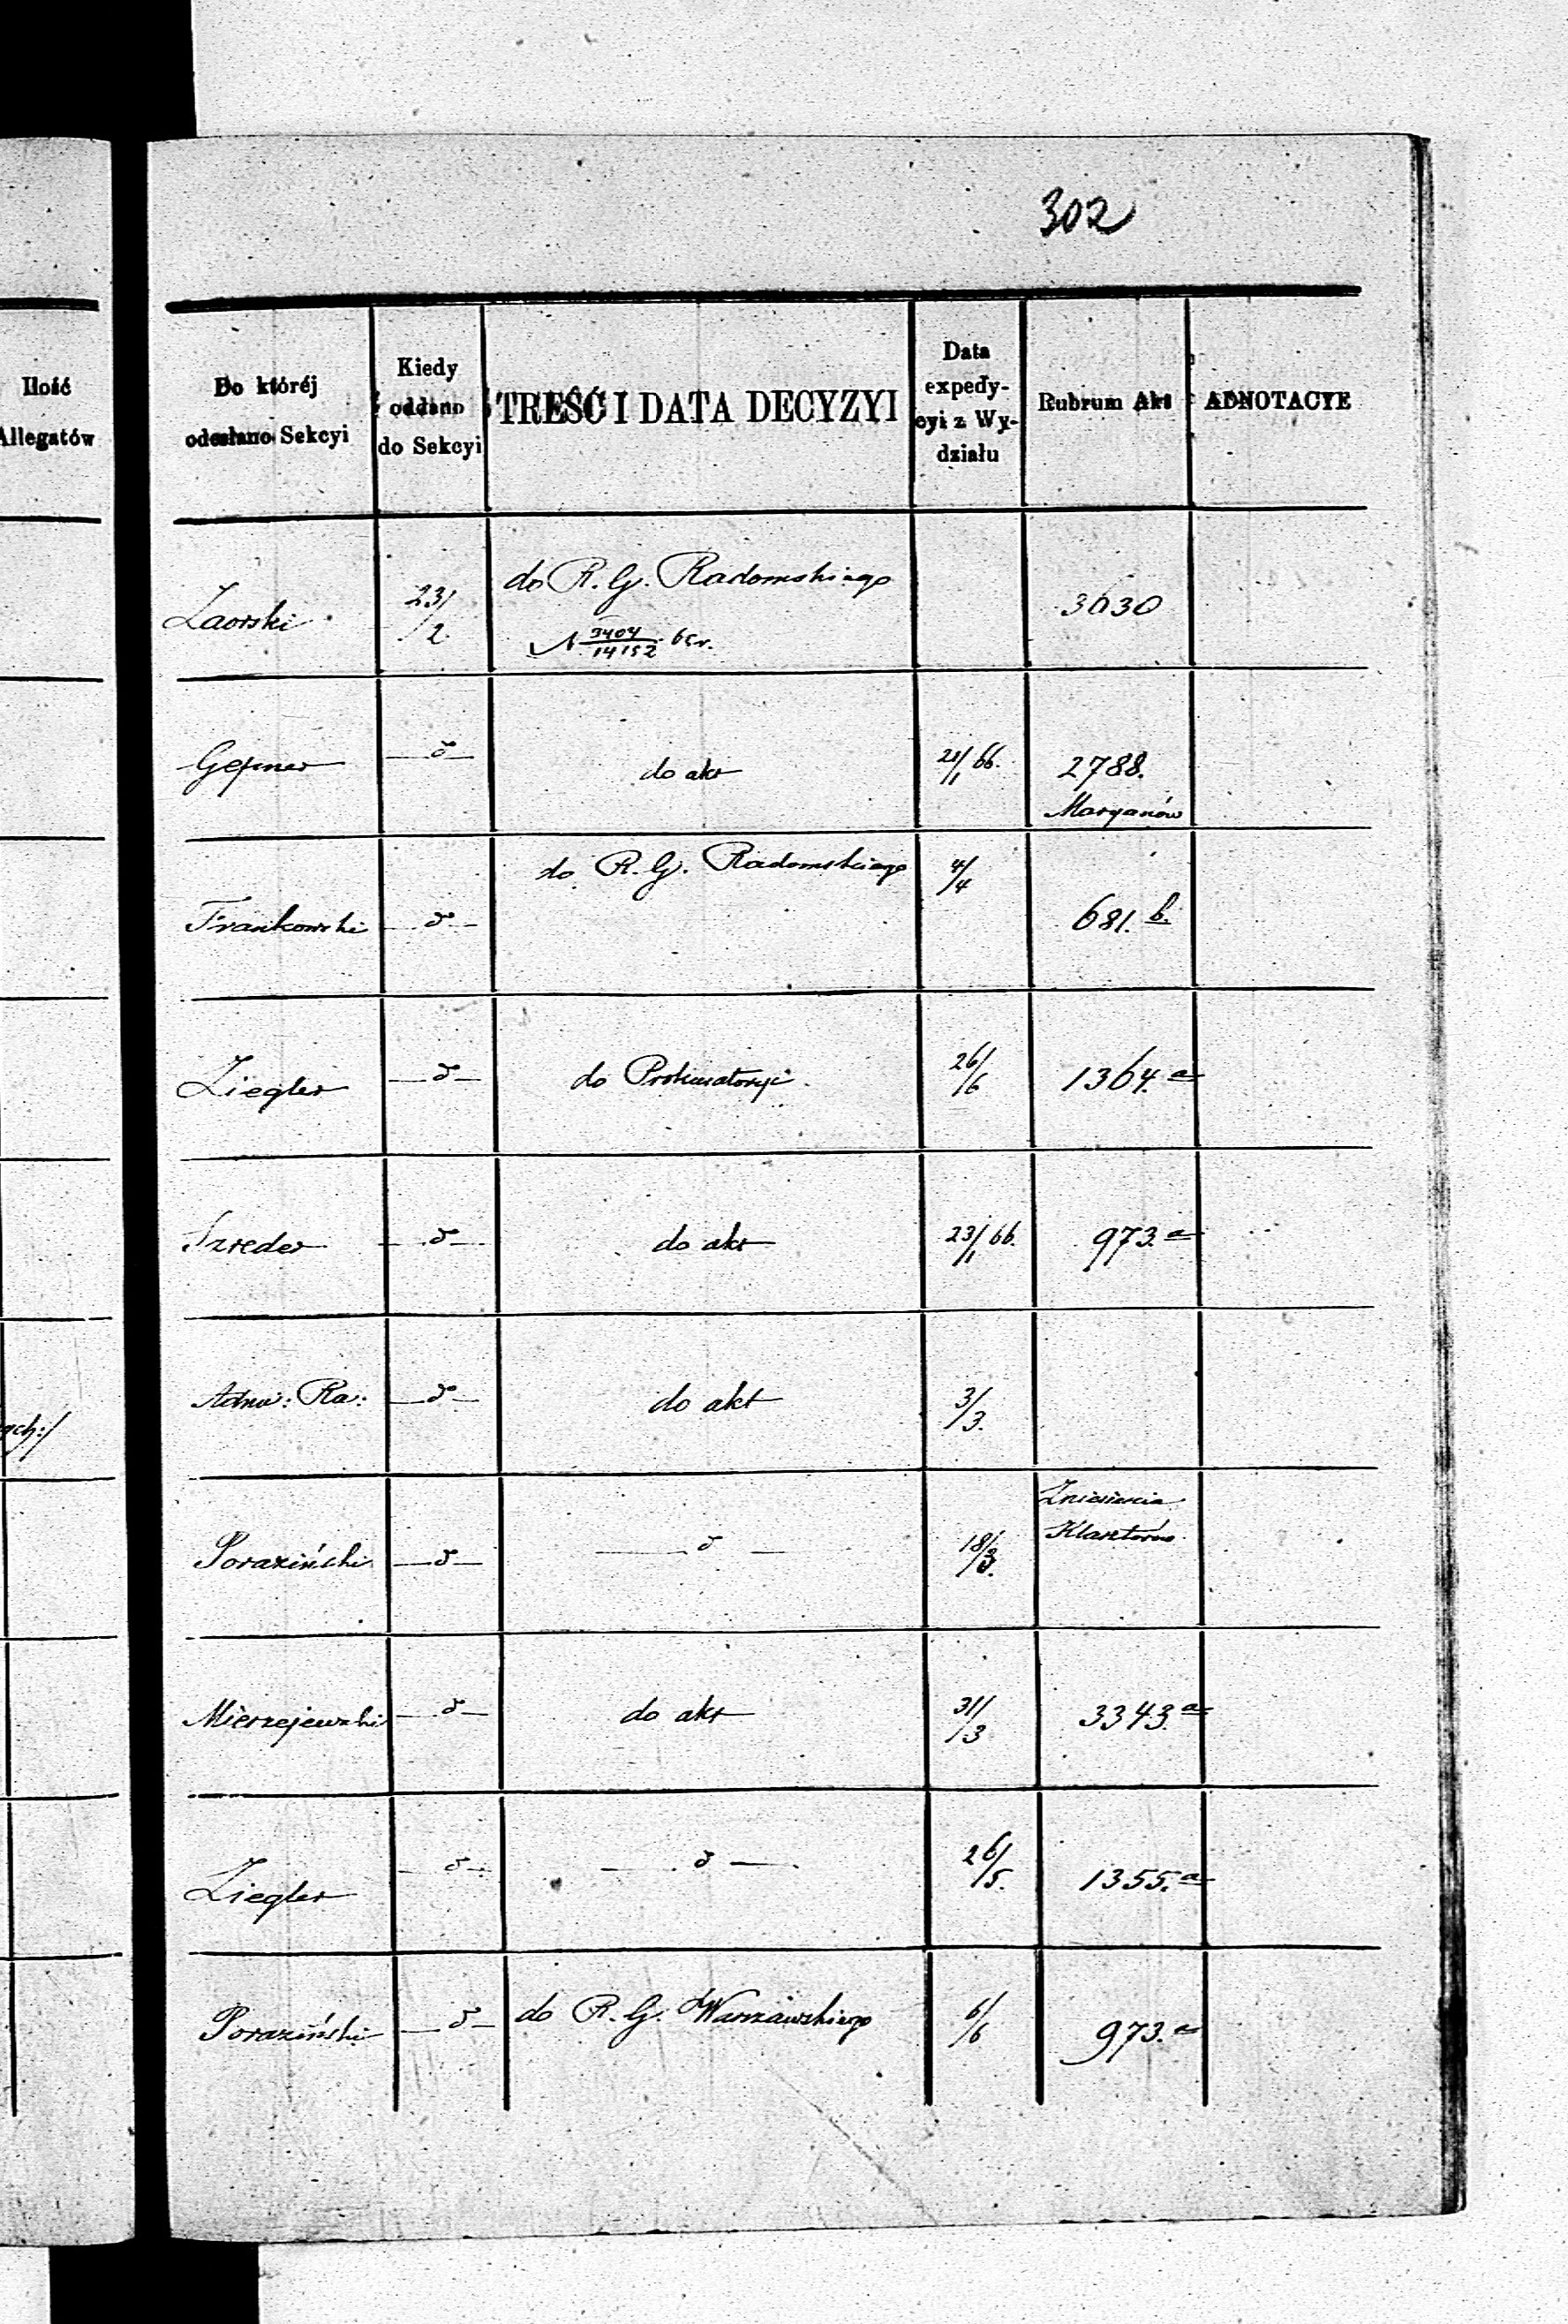 302
Ilość
Allegatów
Do któréj
odesłano Sekcyi
Kiedy
oddano
do Sekcyi
TREŚĆ I DATA DECYZYI
Data
expedy-
cyi z Wy-
działu
Rubrum Akt
ADNOTACYE
Zaorski 23/2 do R. G. Radomskiego 3630
N 3404/14152 65 r.
Gepner — d° — do akt 2788.
Maryanów
do R. G. Radomskiego 4/4
Frankowski — d° — 681. b.
Ziegler — d° — do Prokuratoryi. 26/6 1364. a
Szreder — d° — do akt 23/1 66. 973. a
Adm: Ra: — d° — do akt 3/3.
ych:/
Zniesienia
Klasztorów
Poraziński — d° — — d° — 18/3.
Mierzejewski — d° — do akt 31/3 3343. a
Ziegler — d° — — d° — 26/5. 1355. a
Poraziński — d° — do R. G. Warszawskiego 6/6 973. a